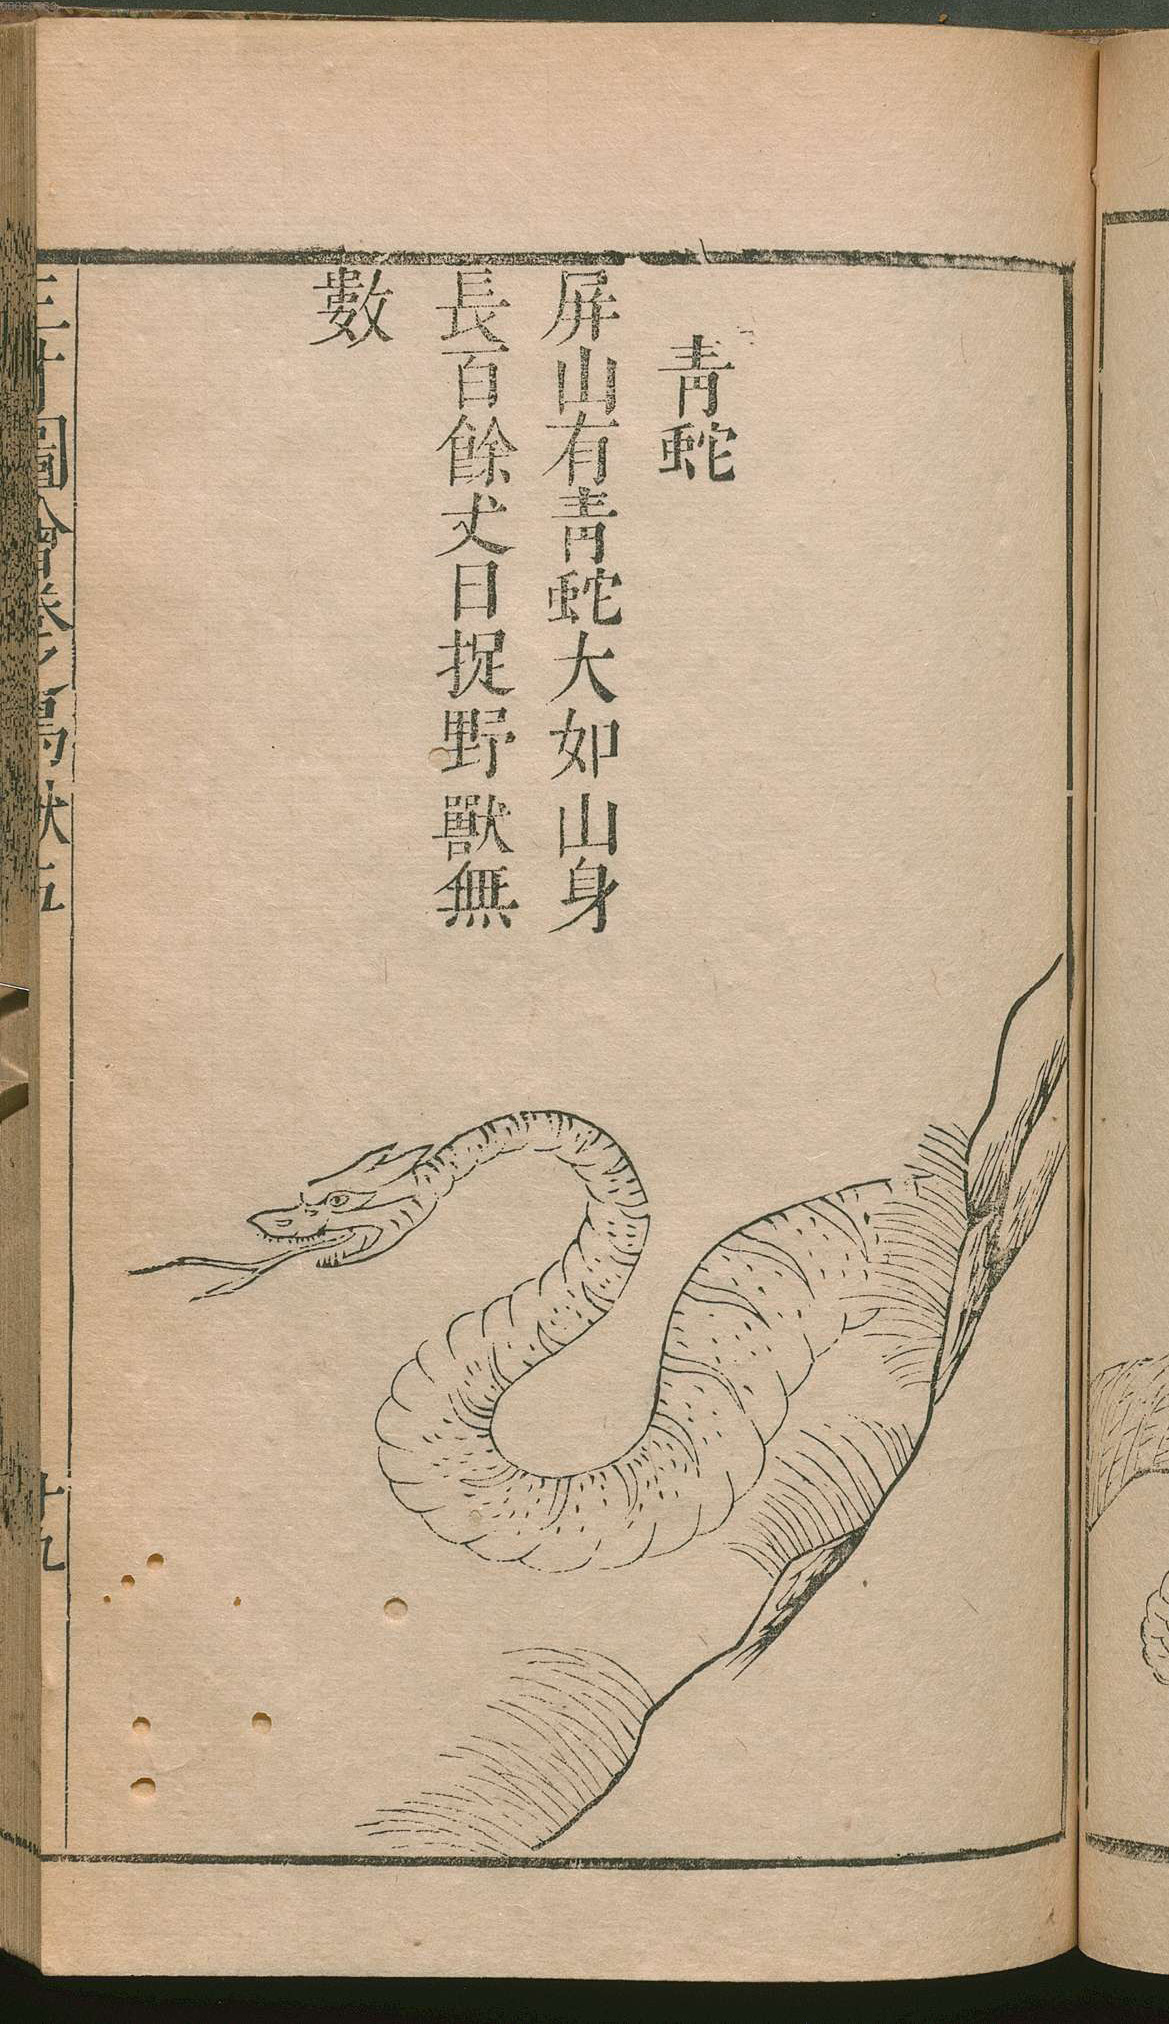 青蛇
屏山有青蛇大如山身
長百餘丈日捉野獸無
數
三才圖會卷之鳥獸五
十九